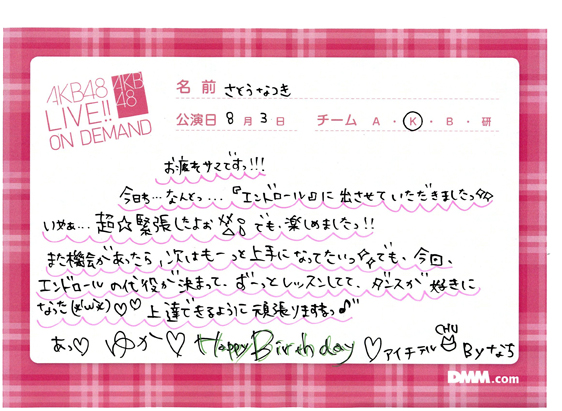 AKB48
LIVE!!
ON DEMAND
AKB
48
名前 さとうなつき
公演日 8月3日 チーム A・K・B・研
お疲れサマですっ!!!
今日も...なんとっ...『エンドロール』に出させていただきましたっ
いやぁ...超☆緊張したよぉ でも、楽しめましたっ!!
また機会があったら、次はもーっと上手になってたいっ☆でも、今回、
エンドロールの代役が決まって、ずーっとレッスンしてて、ダンスが好きに
なった(≧ω≦)♡♡ 上達できるように頑張りますねっ♪
あっ♡ ゆか♡ Happy Birthday ♡アイチテル CHU Byなち
DMM.com